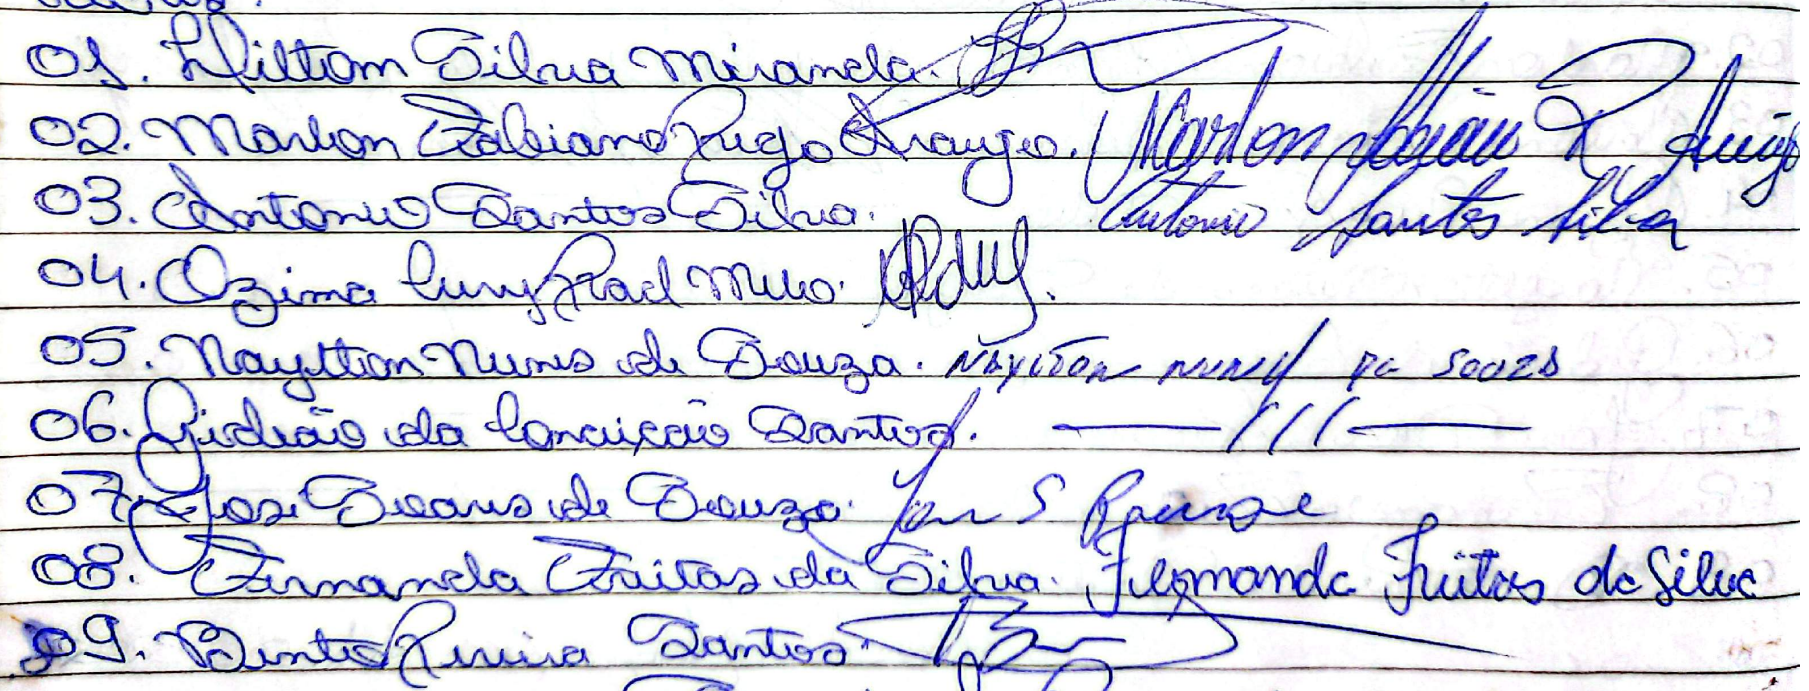 01. Wiltom Silva Miranda.
02. Marlon Fabiano Rego Araujo. Marlon Fabiano R Araujo
03. Antonio Santos Silva. Antonio Santos Silva
04. Ozima Cury Melo.
05. Naylton Nunes de Souza. Naylton Nunes de Souza
06. Gideão da Conceição Santos. ———///———
07. Jose Soares de Souza.
08. Fernanda Freitas da Silva. Fernanda Freitas da Silva
09. Bento Pereira Santos.